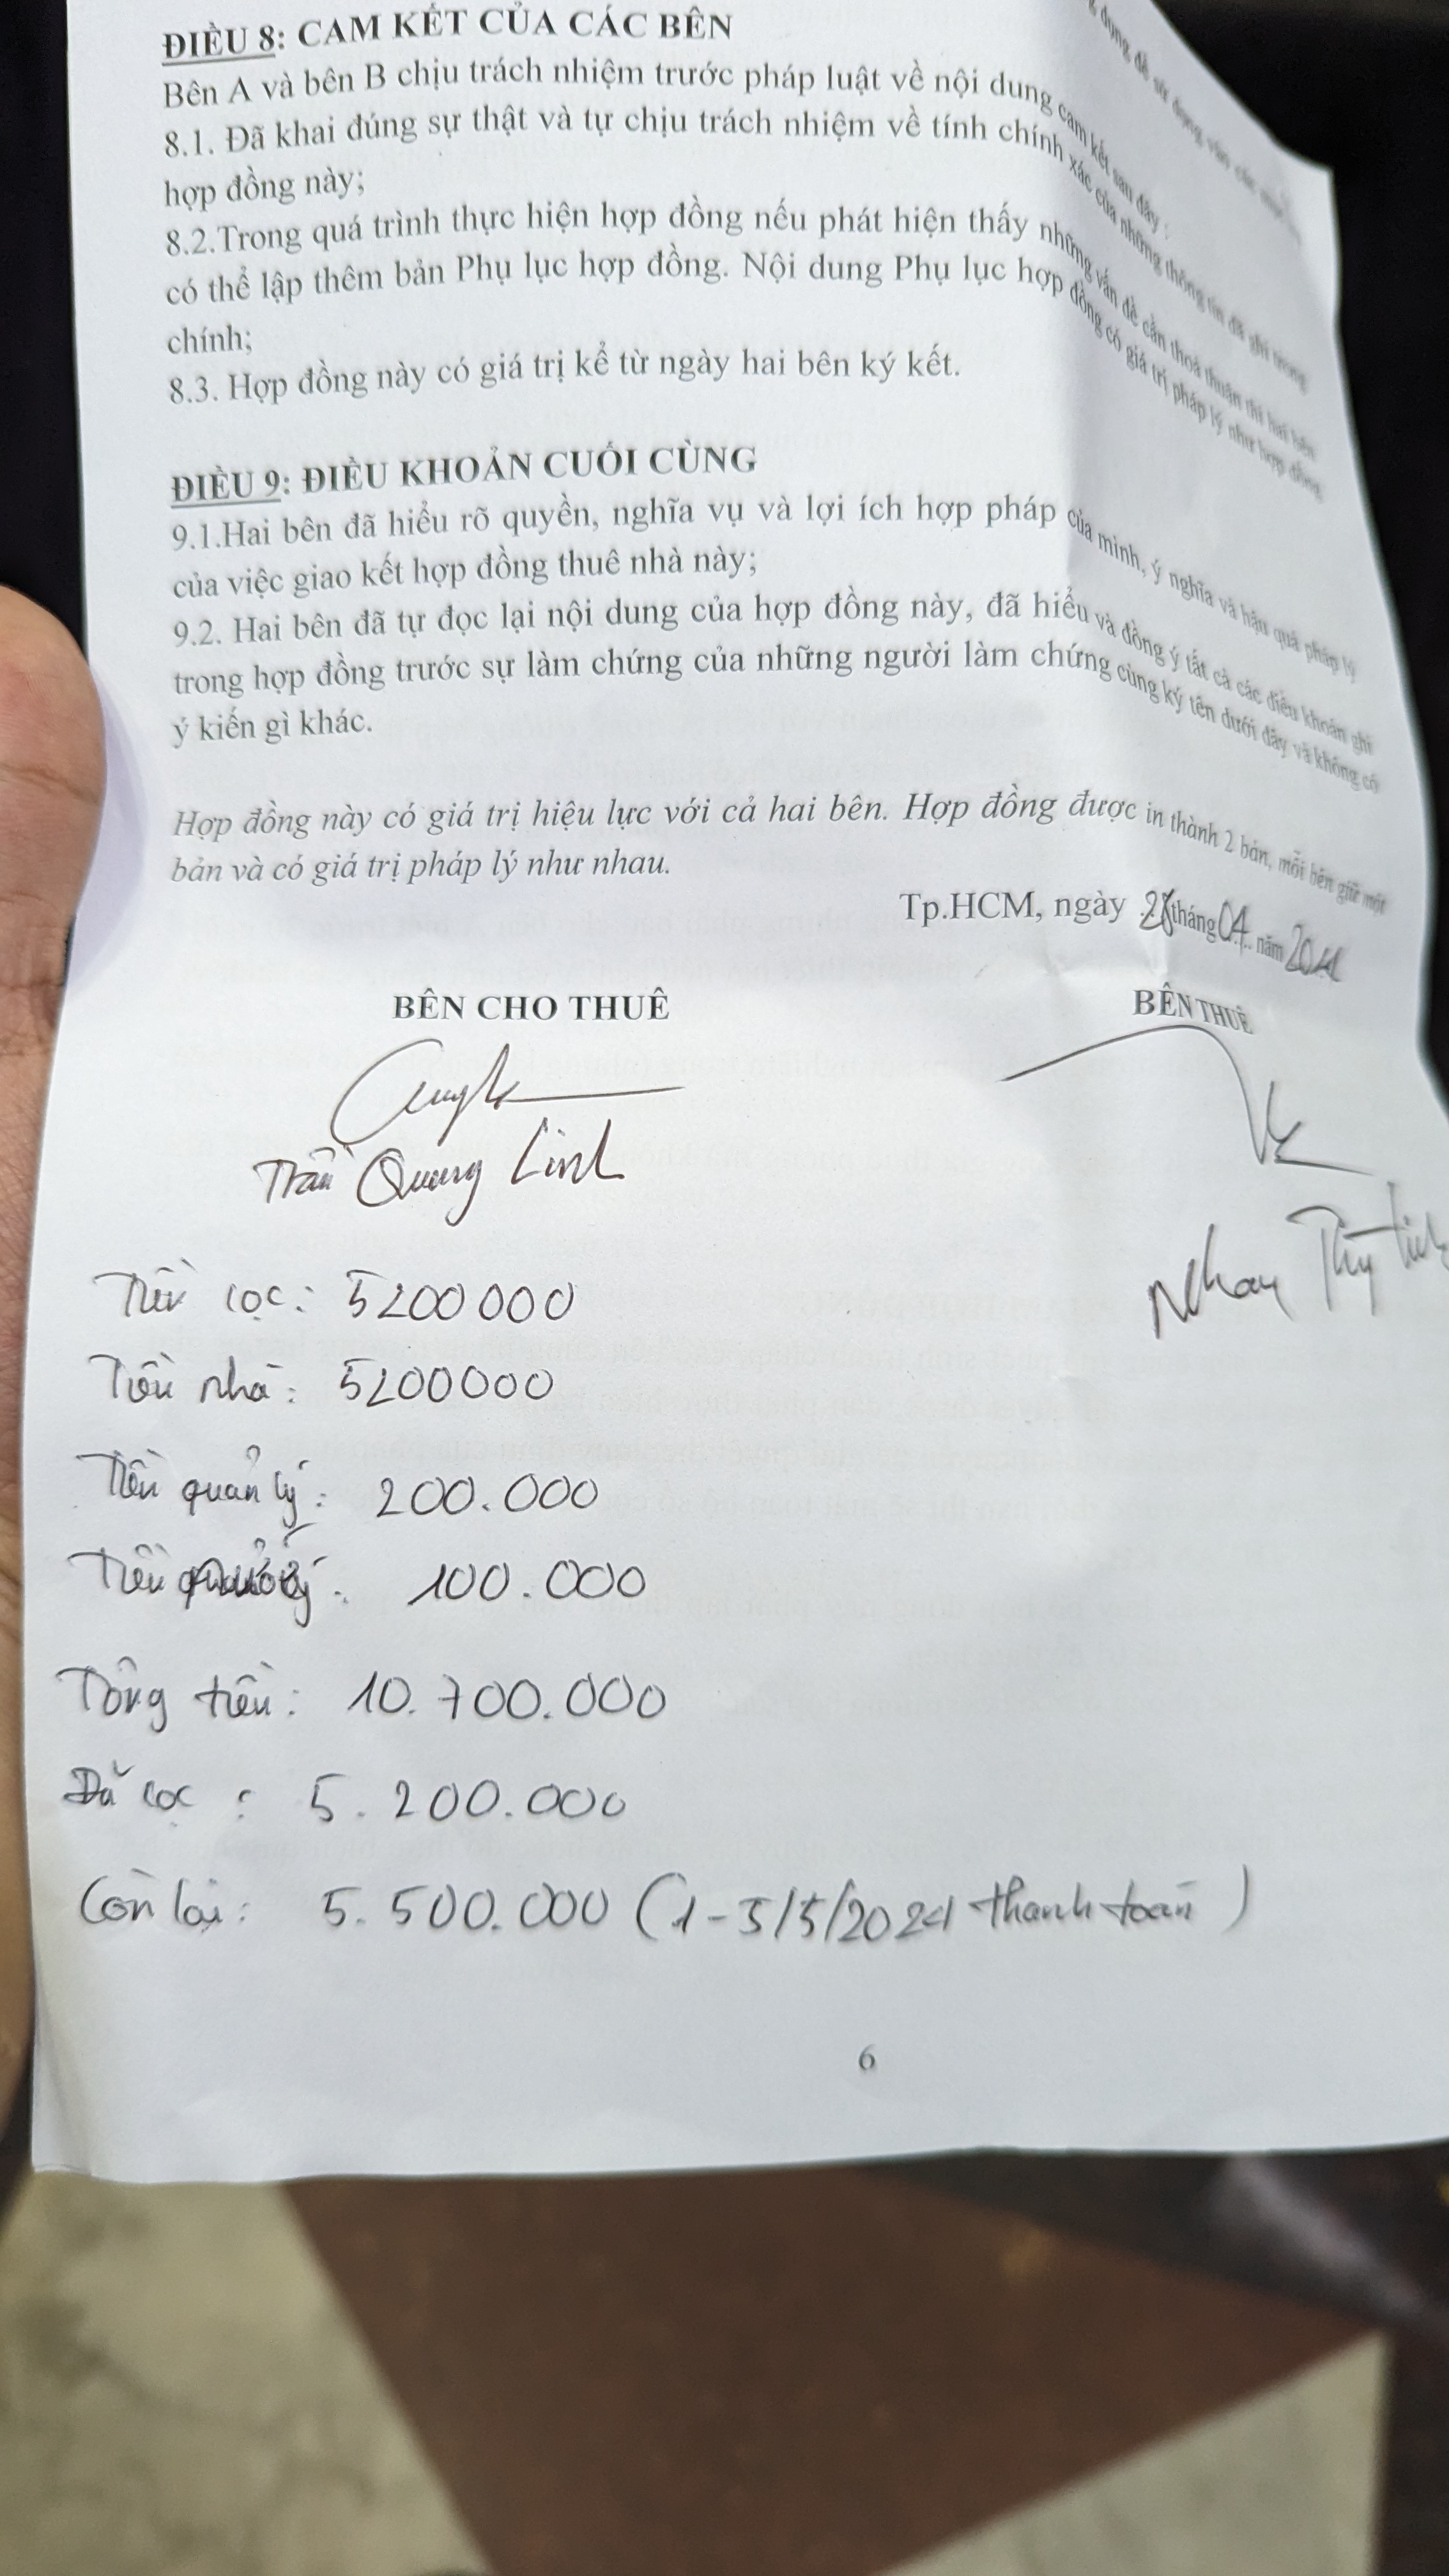 dụng để sử dụng vào các mục
ĐIỀU 8: CAM KẾT CỦA CÁC BÊN
Bên A và bên B chịu trách nhiệm trước pháp luật về nội dung cam kết sau đây :
8.1. Đã khai đúng sự thật và tự chịu trách nhiệm về tính chính xác của những thông tin đã ghi trong
hợp đồng này;
8.2.Trong quá trình thực hiện hợp đồng nếu phát hiện thấy những vấn đề cần thoả thuận thì hai bên
có thể lập thêm bản Phụ lục hợp đồng. Nội dung Phụ lục hợp đồng có giá trị pháp lý như hợp đồng
chính;
8.3. Hợp đồng này có giá trị kể từ ngày hai bên ký kết.
ĐIỀU 9: ĐIỀU KHOẢN CUỐI CÙNG
9.1.Hai bên đã hiểu rõ quyền, nghĩa vụ và lợi ích hợp pháp của mình, ý nghĩa và hậu quả pháp lý
của việc giao kết hợp đồng thuê nhà này;
9.2. Hai bên đã tự đọc lại nội dung của hợp đồng này, đã hiểu và đồng ý tất cả các điều khoản ghi
trong hợp đồng trước sự làm chứng của những người làm chứng cùng ký tên dưới đây và không có
ý kiến gì khác.
Hợp đồng này có giá trị hiệu lực với cả hai bên. Hợp đồng được in thành 2 bản, mỗi bên giữ một
bản và có giá trị pháp lý như nhau.
Tp.HCM, ngày tháng 04 năm
BÊN CHO THUÊ BÊN THUÊ
Trần Quang Linh
Thy
Tiền cọc: 5200000
Tiền nhà: 5200000
Tiền quản lý: 200.000
Tiền 100.000
Tổng tiền: 10.700.000
Đã cọc : 5.200.000
Còn lại: 5.500.000 (1-5/5/2024 thanh toán)
6